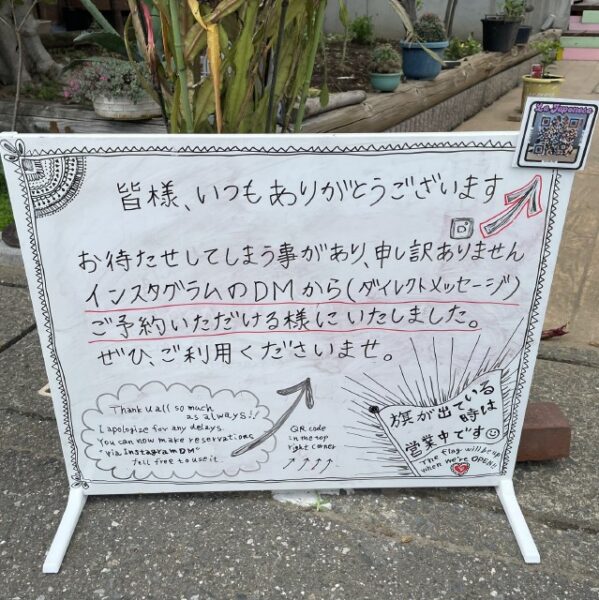 皆様、いつもありがとうございます
お待たせしてしまう事があり、申し訳ありません
インスタグラムのDMから(ダイレクトメッセージ)
ご予約いただける様にいたしました。
ぜひ、ご利用くださいませ。
Thank u all so much
as always!!
I apologize for any delays.
You can now make reservations
"via instagram DM"
feil free to use it
QR code
in the top
right corner
旗が出ている
時は
営業中です
The flag will be up
when we're OPEN!!